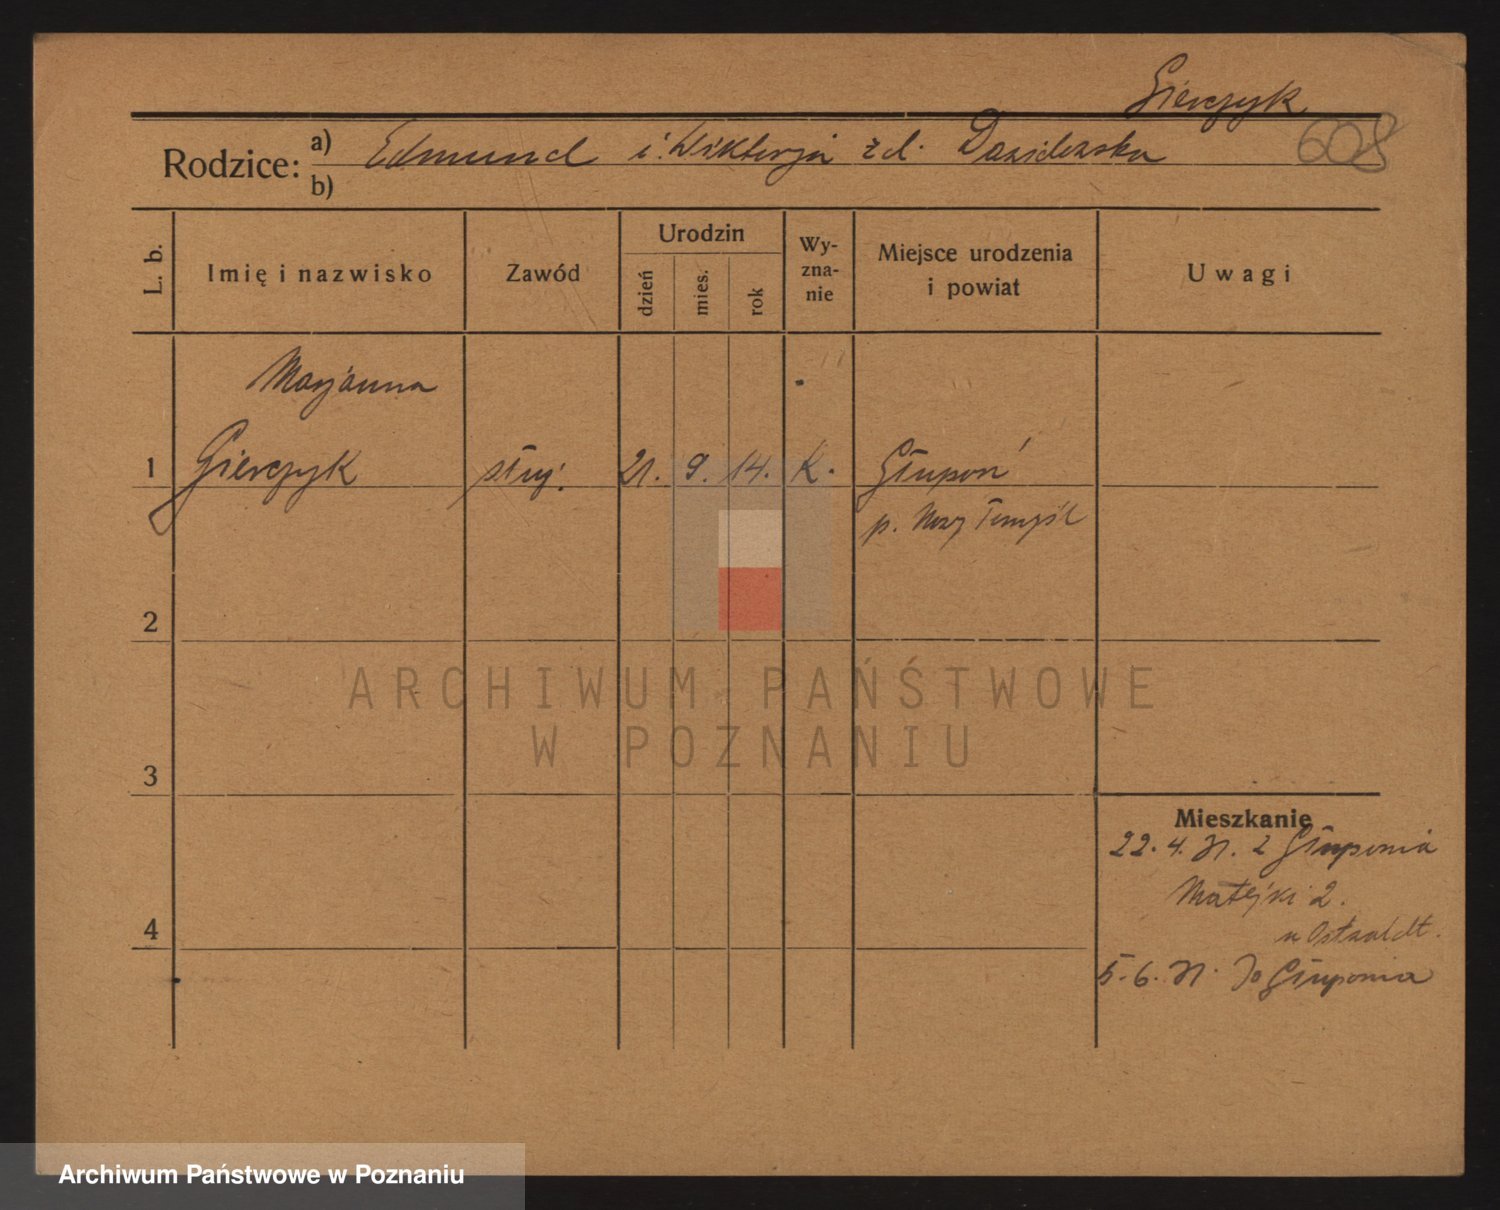 Gierczyk
608
Rodzice: a) Edmund i Wiktorja zd.
b)
L. b.
Imię i nazwisko
Zawód
Urodzin
dzień
mies.
rok
Wy-
zna-
nie
Miejsce urodzenia
i powiat
Uwagi
Marjanna
1 Gierczyk służ. 21. 9. 14. K. Głupoń
p. Nowy Tomyśl
2
3
4
Mieszkanie
22. 4. z Głuponia
Matejki 2.
u
5. 6. do Głuponia
ARCHIWUM PAŃSTWOWE
W POZNANIU
Archiwum Państwowe w Poznaniu